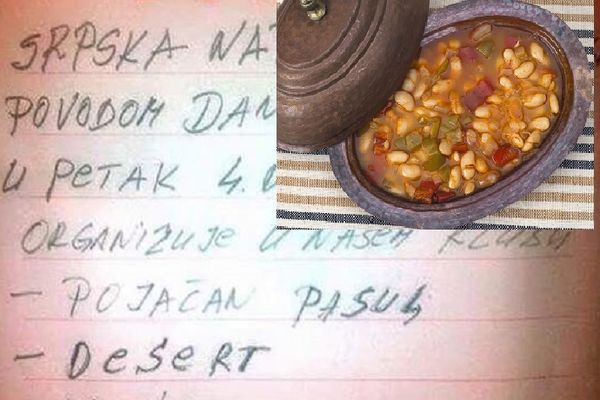 SRPSKA
POVODOM
U PETAK 4.
ORGANIZUJE U NAŠEM KLUBU
- POJAČAN PASULJ
- DESERT